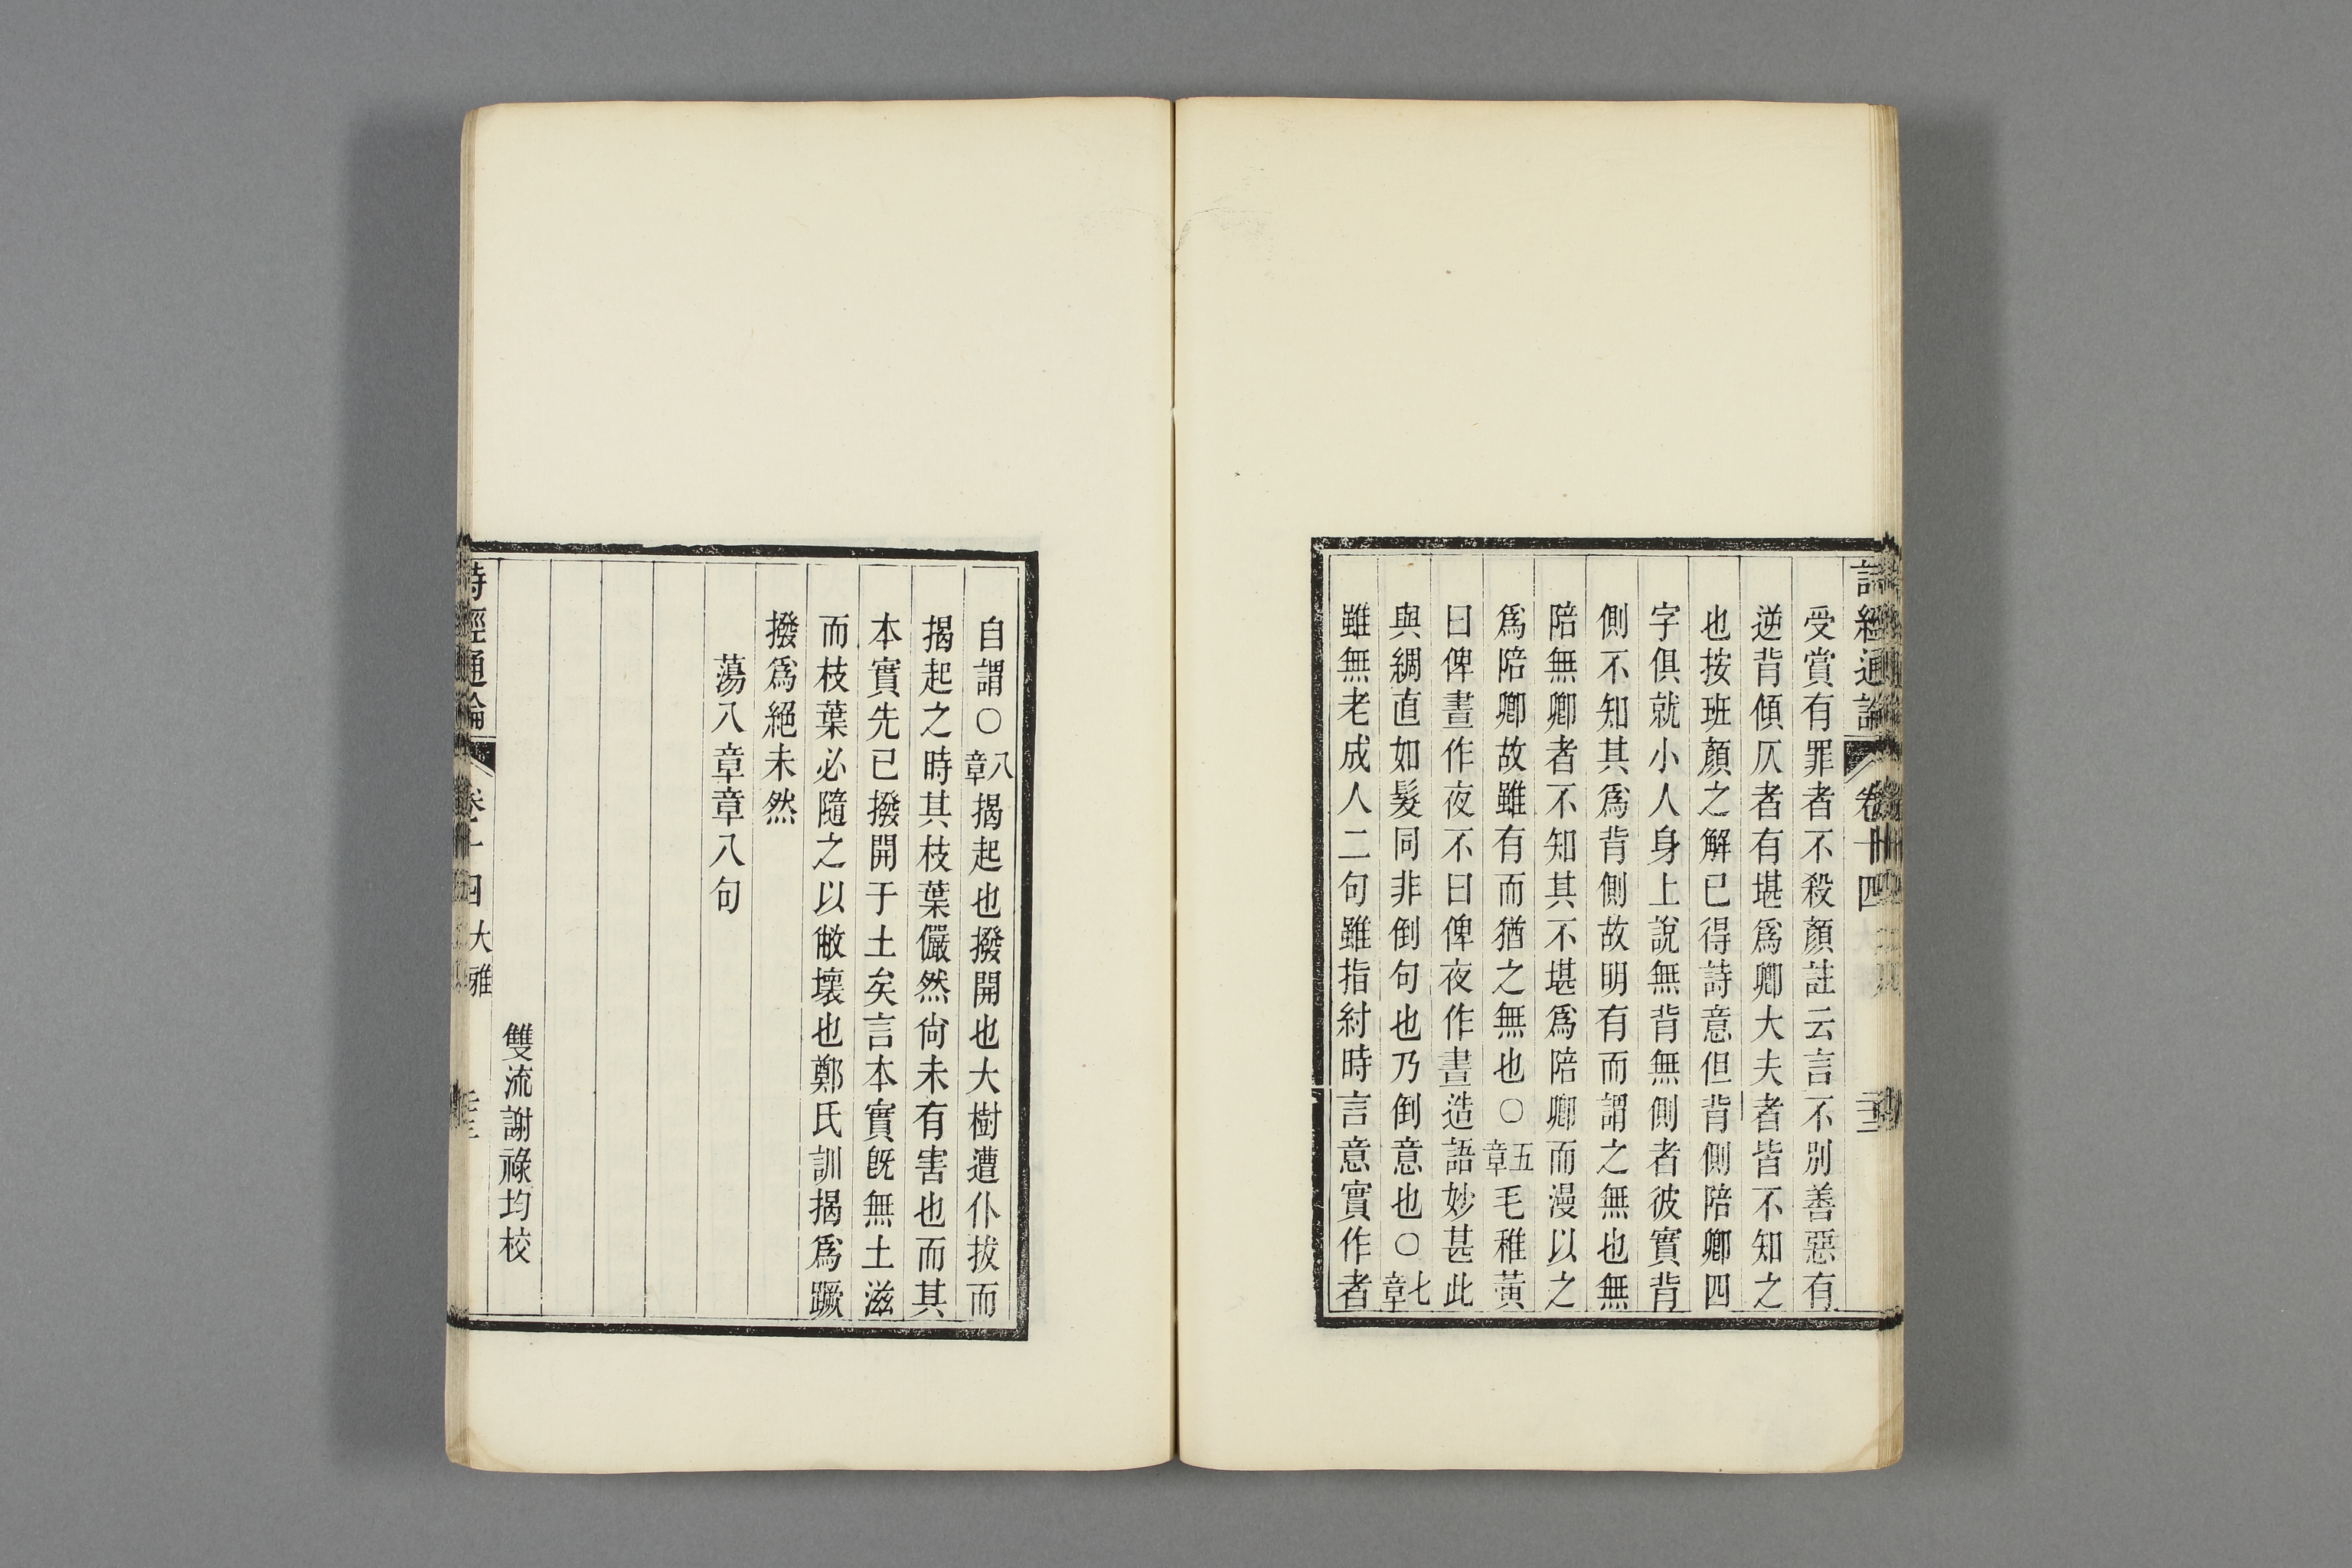 詩經通論 卷十四
受賞有罪者不殺顏註云言不別善惡有
逆背傾仄者有堪爲卿大夫者皆不知之
也按班顏之解已得詩意但背側陪卿四
字俱就小人身上說無背無側者彼實背
側不知其爲背側故明有而謂之無也無
陪無卿者不知其不堪爲陪卿而漫以之
爲陪卿故雖有而猶之無也○五章毛稚黃
曰俾晝作夜不曰俾夜作晝造語妙甚此
與綢直如髮同非倒句也乃倒意也○七章
雖無老成人二句雖指紂時言意實作者
自謂○八章揭起也撥開也大樹遭仆拔而
揭起之時其枝葉儼然尙未有害也而其
本實先已撥開于土矣言本實旣無土滋
而枝葉必隨之以敝壞也鄭氏訓揭爲蹶
撥爲絕未然
蕩八章章八句
雙流謝祿均校
詩經通論 卷十四大雅